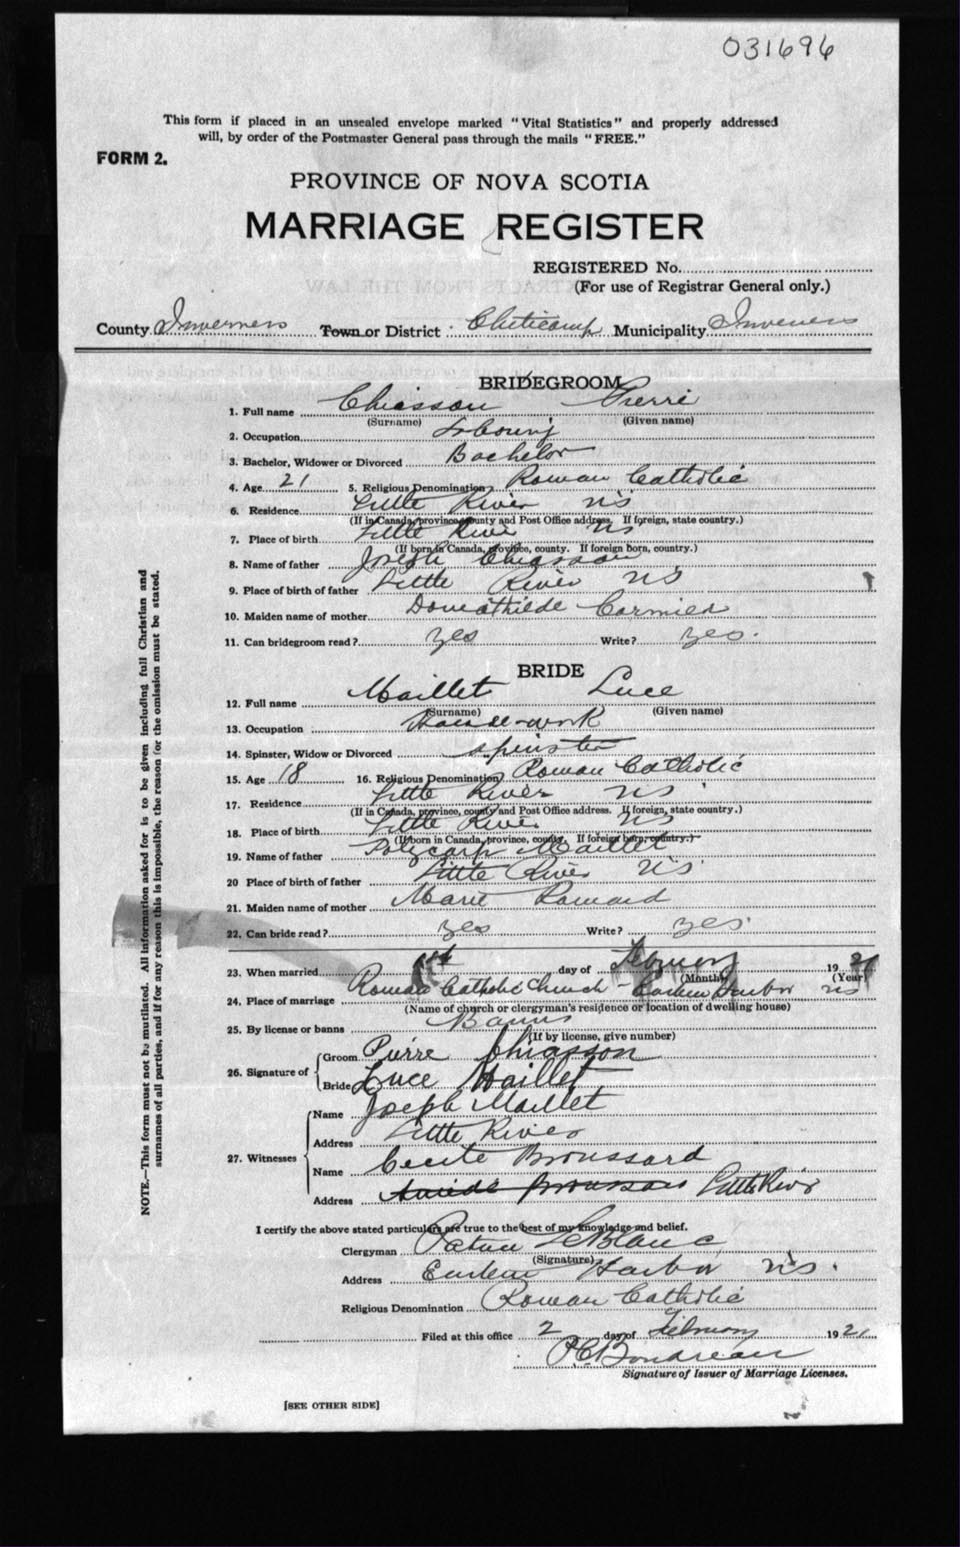 031696
This form if placed in an unsealed envelope marked "Vital Statistics" and properly addressed
will, by order of the Postmaster General pass through the mails "FREE."
FORM 2.
PROVINCE OF NOVA SCOTIA
MARRIAGE REGISTER
REGISTERED No.
(For use of Registrar General only.)
County Inverness Town or District Cheticamp Municipality Inverness
BRIDEGROOM
1. Full name Chiasson Pierre
(Surname) (Given name)
2. Occupation
3. Bachelor, Widower or Divorced Bachelor
4. Age 21 5. Religious Denomination Roman Catholic
6. Residence Little River NS
(If in Canada, province, county and Post Office address. If foreign, state country.)
7. Place of birth Little River NS
(If born in Canada, province, county. If foreign born, country.)
8. Name of father Joseph Chiasson
9. Place of birth of father Little River NS
10. Maiden name of mother Cormier
11. Can bridegroom read? Yes Write? Yes.
BRIDE
12. Full name Maillet Luce
(Surname) (Given name)
13. Occupation House-work
14. Spinster, Widow or Divorced spinster
15. Age 18 16. Religious Denomination Roman Catholic
17. Residence Little River NS
(If in Canada, province, county and Post Office address. If foreign, state country.)
18. Place of birth Little River NS
(If born in Canada, province, county. If foreign born, country.)
19. Name of father Polycarp Maillet
20 Place of birth of father Little River NS
21. Maiden name of mother Marie
22. Can bride read? Yes Write? Yes.
23. When married 1st day of February 1921
(Month) (Year)
24. Place of marriage Roman Catholic Church - Eastern Harbor NS
(Name of church or clergyman's residence or location of dwelling house)
25. By license or banns Banns
(If by license, give number)
26. Signature of Groom Pierre Chiasson
Bride Luce Maillet
27. Witnesses Name Joseph Maillet
Address Little River
Name Cecile Broussard
Address Broussard Little River
I certify the above stated particulars are true to the best of my knowledge and belief.
Clergyman LeBlanc
(Signature)
Address Eastern Harbor NS.
Religious Denomination Roman Catholic
Filed at this office 2 day of February 1921
Signature of Issuer of Marriage Licenses.
[SEE OTHER SIDE]
NOTE.—This form must not be mutilated. All information asked for is to be given including full Christian and
surnames of all parties, and if for any reason this is impossible, the reason for the omission must be stated.